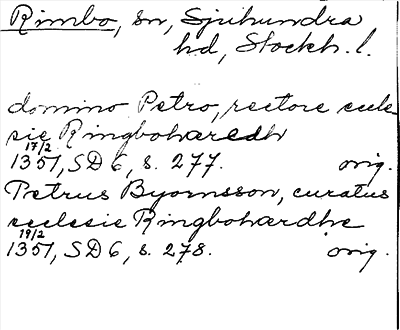 Rimbo, sn, Sjuhundra
hd, Stockh. l.
domino Petro, rectore eccle-
sie Ringboharedh
17/2
1351, SD 6, s. 277. orig.
Petrus Byornsson, curatus
ecclesie Ringbohardhe
19/2
1351, SD 6, s. 278. orig.